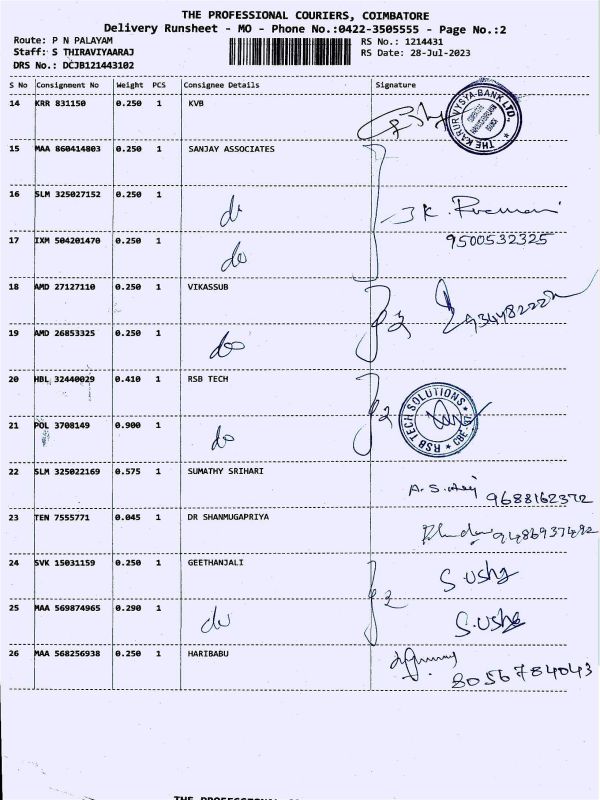 THE PROFESSIONAL COURIERS, COIMBATORE
Delivery Runsheet - MO - Phone No.:0422-3505555 - Page No.:2
Route: P N PALAYAM
RS No.: 1214431
Staff: S THIRAVIYAARAJ
RS Date: 28-Jul-2023
DRS No.: DCJB121443102
S No Consignment No Weight PCS Consignee Details Signature
14 KRR 831150 0.250 1 KVB
THE KARUR VYSYA BANK LTD.
15 MAA 860414803 0.250 1 SANJAY ASSOCIATES
16 SLM 325027152 0.250 1 do
17 IXM 504201470 0.250 1 do
9500532325
18 AMD 27127110 0.250 1 VIKASSUB
19 AMD 26853325 0.250 1 do
20 HBL 32440029 0.410 1 RSB TECH
2
RSB TECH SOLUTIONS
21 POL 3708149 0.900 1 do
22 SLM 325022169 0.575 1 SUMATHY SRIHARI
9688162372
23 TEN 7555771 0.045 1 DR SHANMUGAPRIYA
9486937492
24 SVK 15031159 0.250 1 GEETHANJALI S.usha
2
25 MAA 569874965 0.290 1 do S.usha
26 MAA 568256938 0.250 1 HARIBABU
8056784043